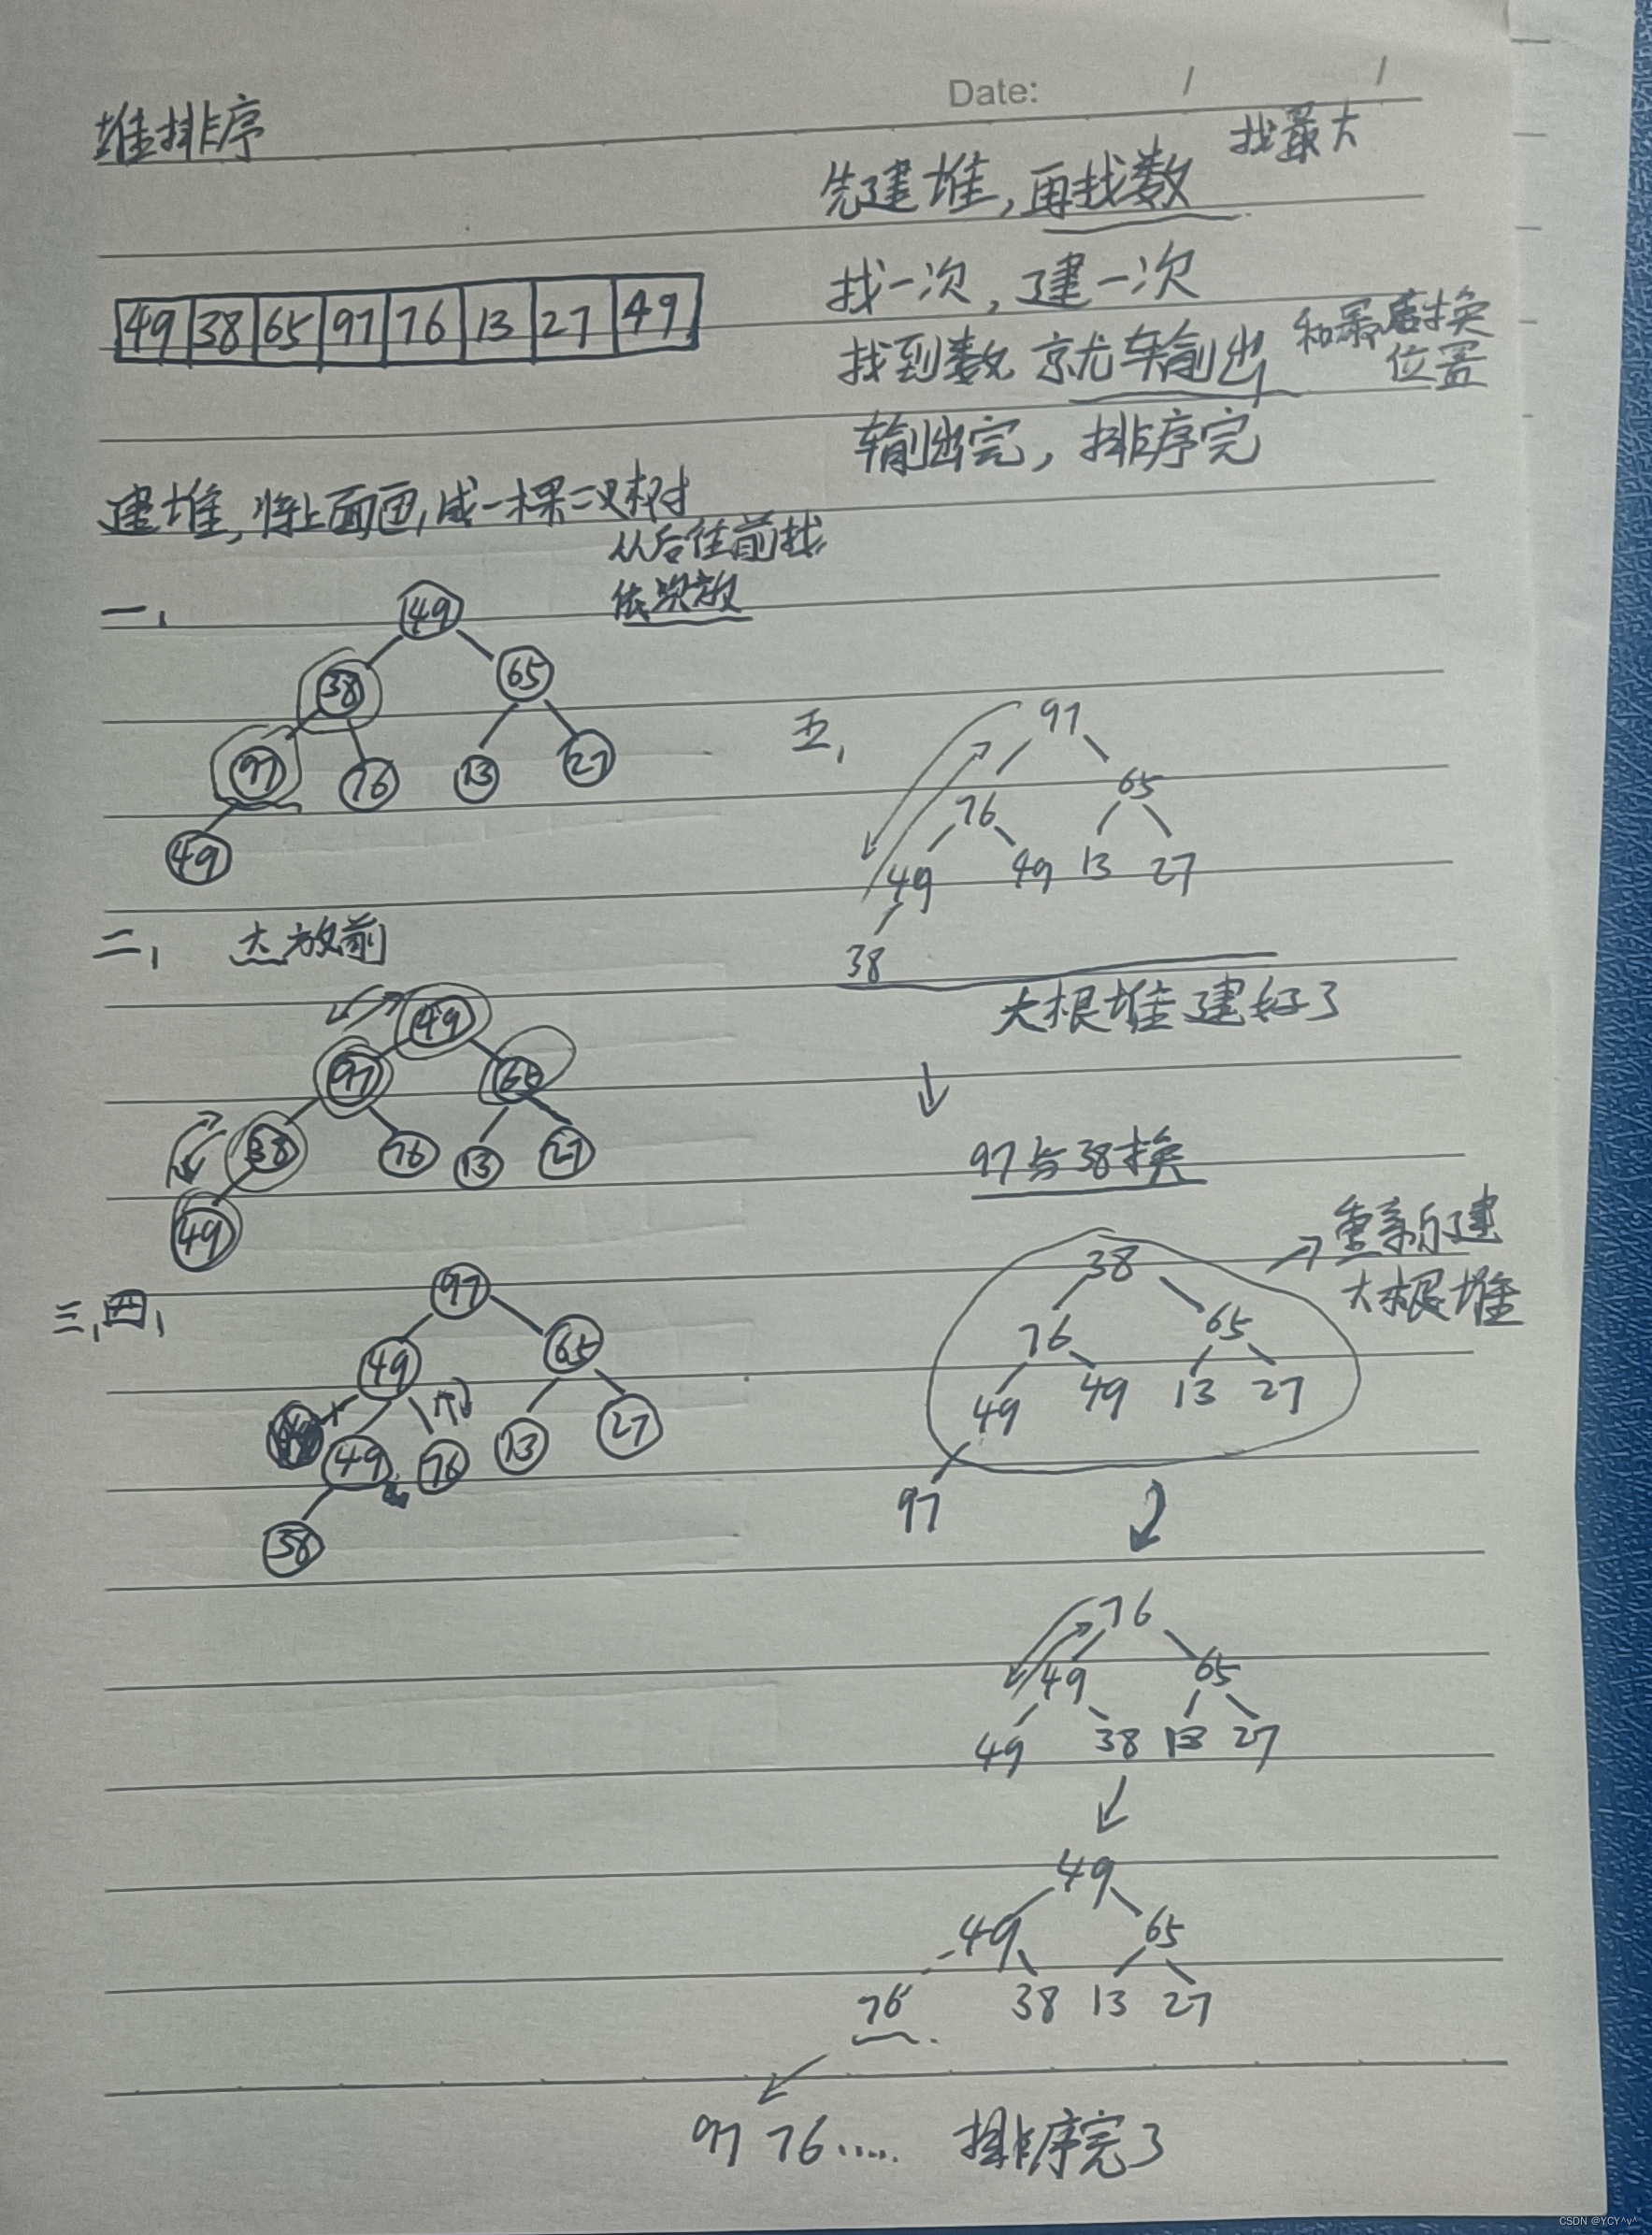 Date: / /
堆排序
先建堆，再找数 找最大
找一次，建一次
找到数 就输出 和最后换
位置
输出完，排序完
49 38 65 97 76 13 27 49
建堆，将上面画成一棵二叉树
从后往前找
依次放
一、
49
38 65
97 76 13 27
49
二、 大放前
49
97 65
38 76 13 27
49
三、四、
97
49 65
49 76 13 27
38
五、
97
76 65
49 49 13 27
38
大根堆建好了
97与38换
重新建
大根堆
38
76 65
49 49 13 27
97
76
49 65
49 38 13 27
49
49 65
76 38 13 27
97 76..... 排序完了
CSDN @YCY^v^